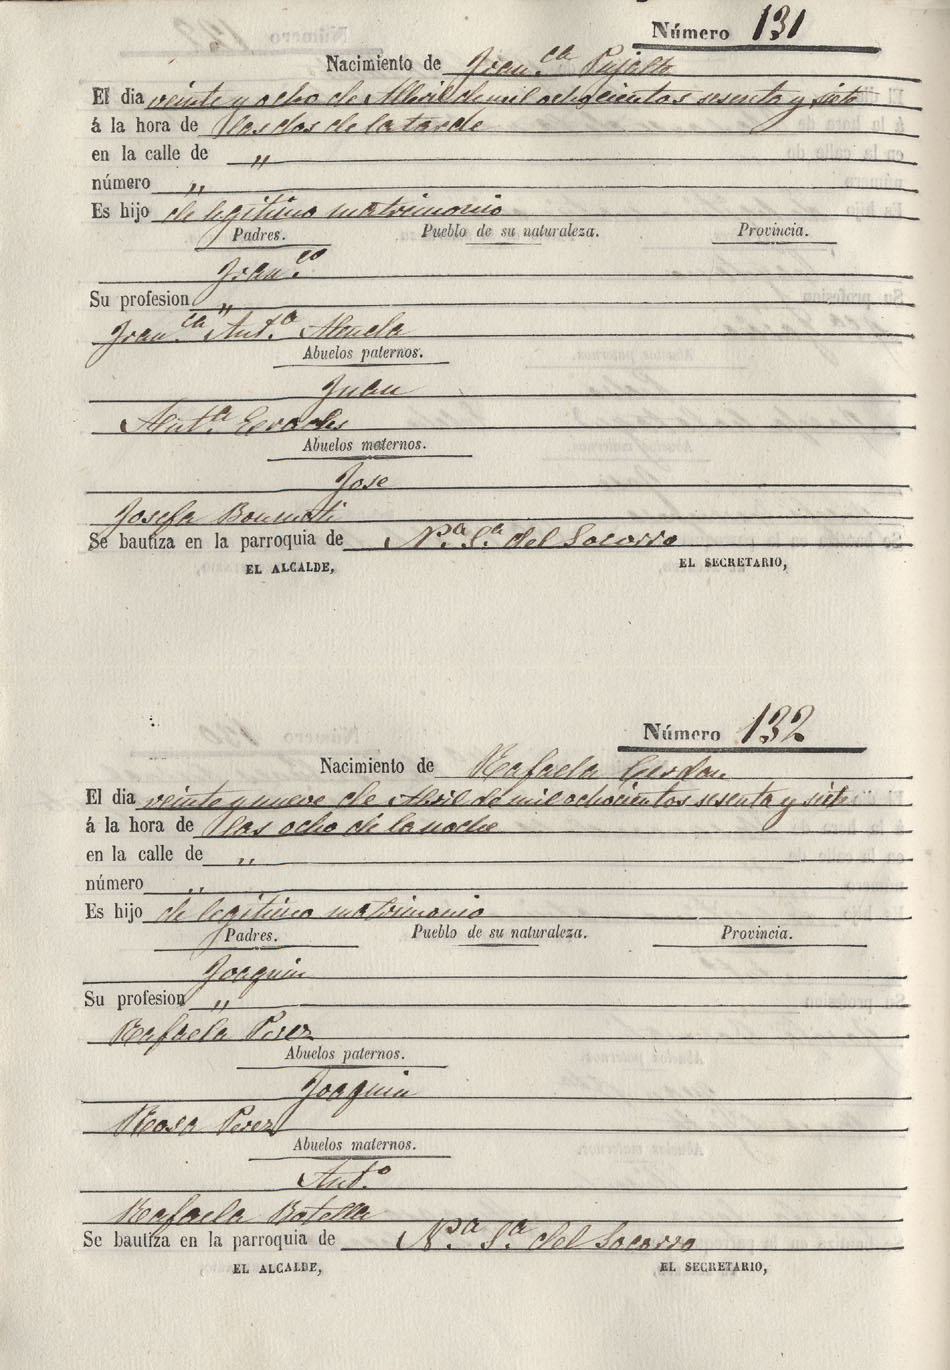 Número 131
Nacimiento de Fran.ca Pujalte
El dia veinte y ocho de Abril de mil ochocientos sesenta y siete
á la hora de las dos de la tarde
en la calle de "
número "
Es hijo de legitimo matrimonio
Padres. Pueblo de su naturaleza. Provincia.
Fran.co
Su profesion "
Fran.ca Ant.a Abuela
Abuelos paternos.
Juan
Ant.a
Abuelos maternos.
Jose
Josefa Bonmati
Se bautiza en la parroquia de N.ra S.a del Socorro
EL ALCALDE, EL SECRETARIO,
Número 132
Nacimiento de Rafaela Cerdan
El dia veinte y nueve de Abril de mil ochocientos sesenta y siete
á la hora de las ocho de la noche
en la calle de "
número "
Es hijo de legitimo matrimonio
Padres. Pueblo de su naturaleza. Provincia.
Joaquin
Su profesion "
Rafaela Perez
Abuelos paternos.
Joaquin
Rosa Perez
Abuelos maternos.
Ant.o
Rafaela Botella
Se bautiza en la parroquia de N.ra S.a del Socorro
EL ALCALDE, EL SECRETARIO,